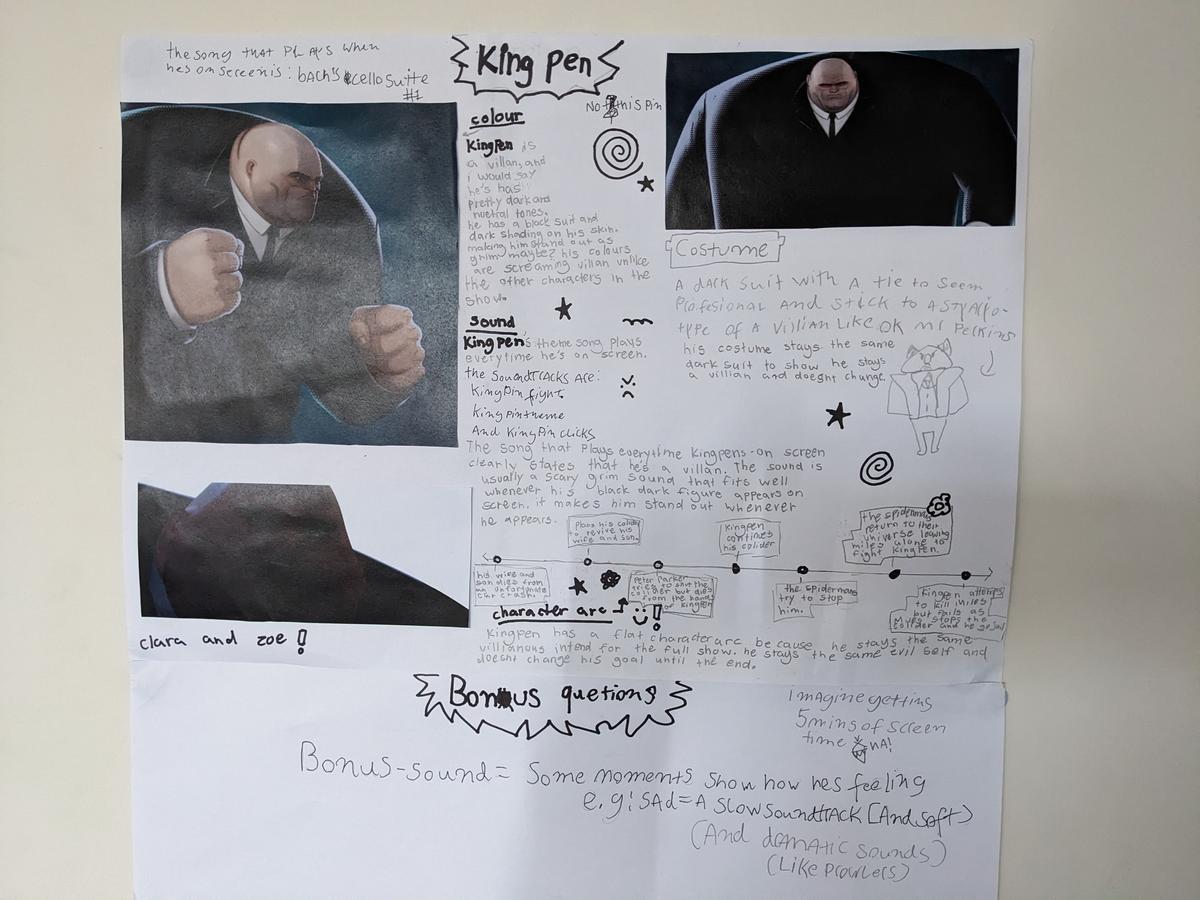 the song THAT PLAYS when
hes on screen is: bACH's cello suite
#1
King pen
Not this pin
colour
KingPen is
a villan, and
i would say
he's has
pretty dark and
nuetral tones.
he has a black suit and
dark shading on his skin.
making him stand out as
grim maybe? his colours
are screaming villan unlike
the other characters in the
show.
Sound
KingPen's theme song plays
everytime he's on screen.
the SoundTRACKS ARe:
KingPin fight
King pin theme
And KingPin clicks
The song that plays everytime Kingpens on screen
clearly states that he's a villan. The sound is
usually a scary grim sound that fits well
whenever his black dark figure appears on
screen, it makes him stand out whenever
he appears.
Costume
A dARK Suit with A tie to Seem
Profesional And Stick to A
type of A Villian Like OK Mr Perkins
his costume stays the same
dark suit to show he stays
a villian and doesnt change.
Plans his colider
to revive his
wife and son.
Kingpen
continues
his colider
the spidermans
return to their
universe leaving
miles alone to
fight Kingpen.
his wife and
son dies from
an unfortunate
car crash.
Peter Parker
tries to shut the
colider but dies
from the hands
of kingpen
the spidermans
try to stop
him.
Kingpen attemps
to kill miles
but fails as
Myles stops the
colider and he
character arc
Kingpen has a flat character arc because he stays the same
villianous intend for the full show. he stays the same evil self and
doesnt change his goal until the end.
clara and zoe!
Bonus quetions
Imagine getting
5mins of screen
time HA!
Bonus-sound= Some moments show how hes feeling
e.g: SAd=A slow soundtRACK [And soft)
(And dramatic sounds)
(Like prowlers)